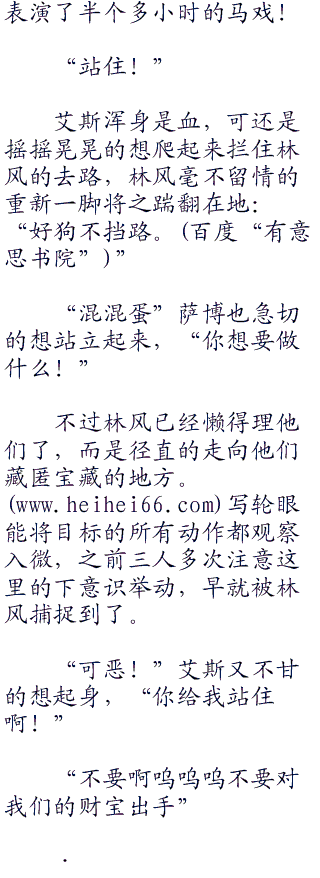 表演了半个多小时的马戏！
“站住！”
艾斯浑身是血，可还是
摇摇晃晃的想爬起来拦住林
风的去路，林风毫不留情的
重新一脚将之踹翻在地：
“好狗不挡路。(百度“有意
思书院”)”
“混混蛋”萨博也急切
的想站立起来，“你想要做
什么！”
不过林风已经懒得理他
们了，而是径直的走向他们
藏匿宝藏的地方。
(www.heihei66.com)写轮眼
能将目标的所有动作都观察
入微，之前三人多次注意这
里的下意识举动，早就被林
风捕捉到了。
“可恶！”艾斯又不甘
的想起身，“你给我站住
啊！”
“不要啊呜呜呜不要对
我们的财宝出手”
.